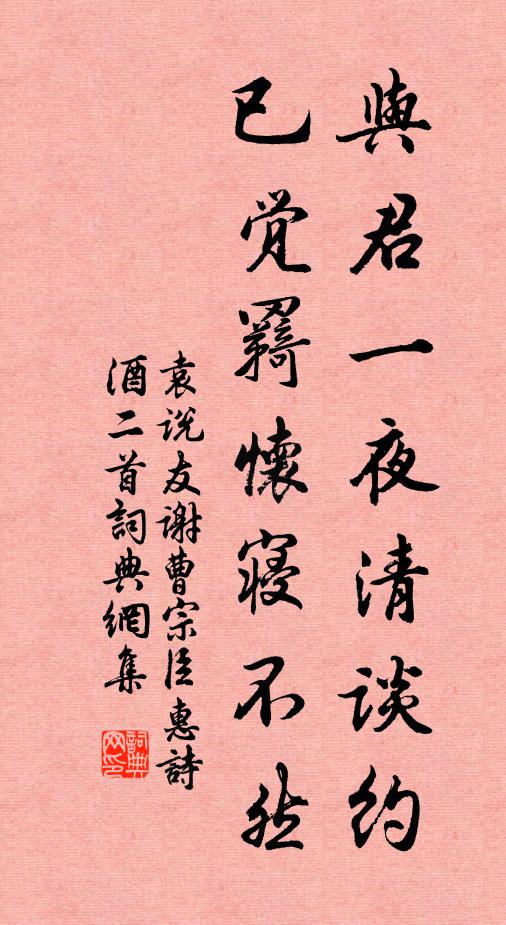 與君一夜清談約
已觉羇懷寝不然
袁说友谢曹宗臣惠詩
酒二首詞典網集
詞典
网印